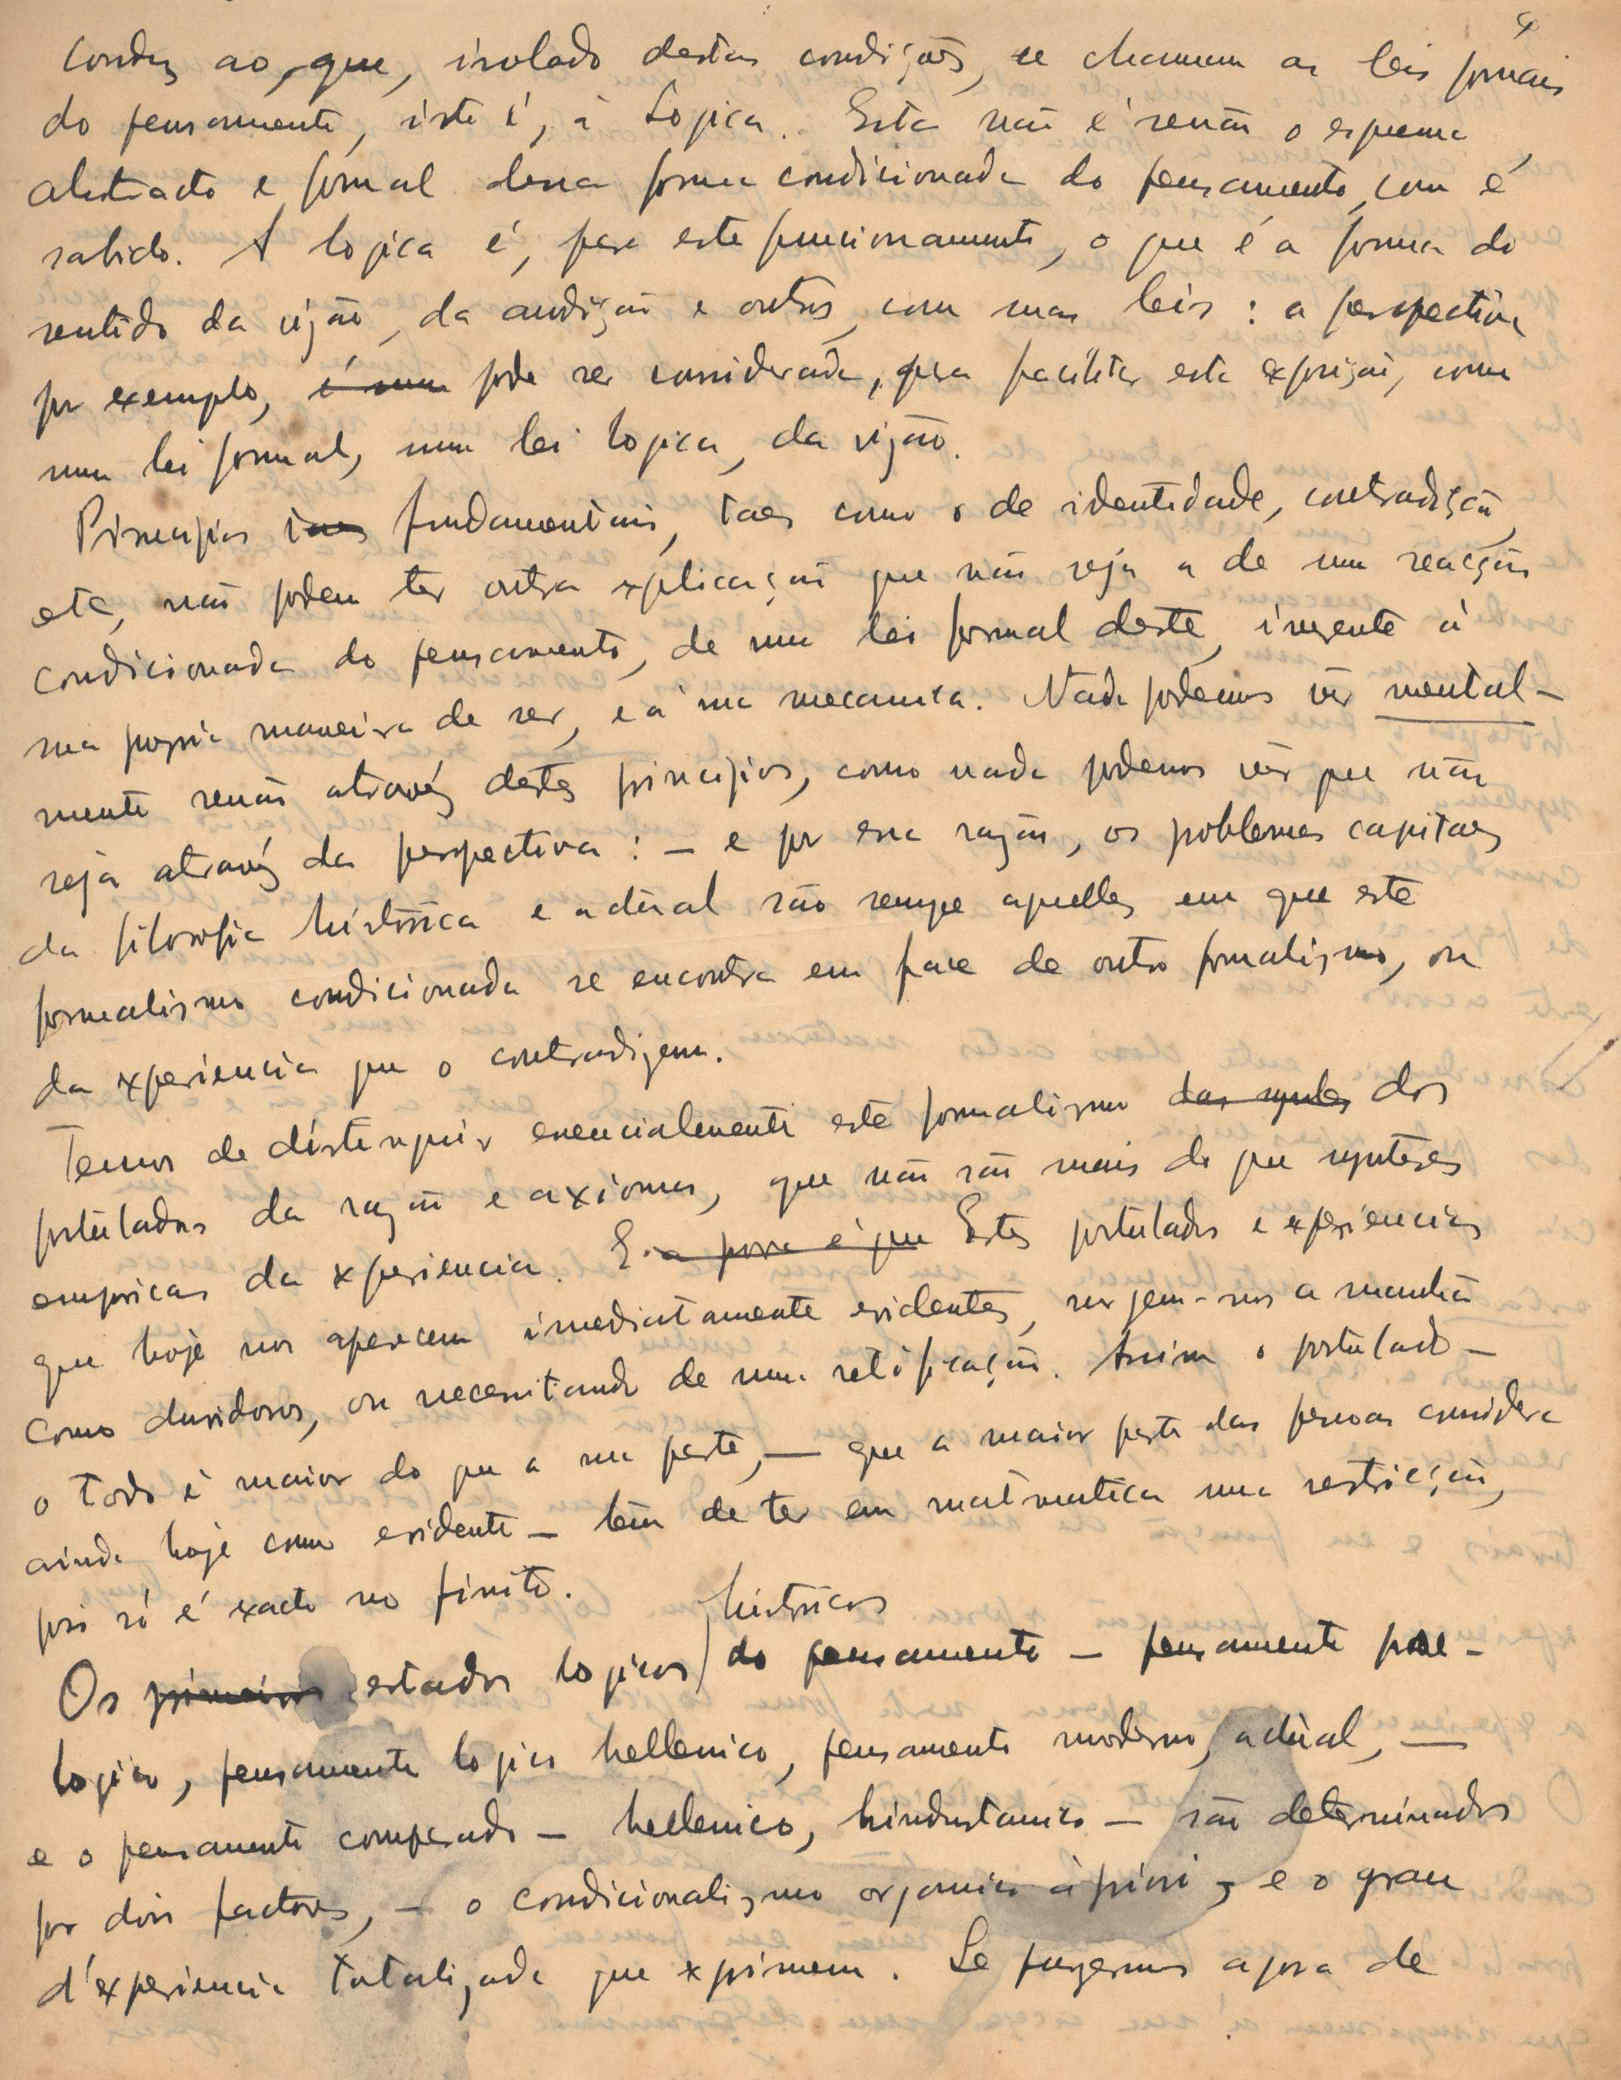 4
conduz ao que, isolado destas condições, se chamam as leis formais
do pensamento, isto é, á Logica. Esta não é senão o esquema
abstracto e formal dessa forma condicionada do pensamento, com é
sabido. A logica é, para este funcionamento, o que é a forma do
sentido da vizão, da audição e outros, com suas leis: a perspectiva
por exemplo, é uma pode ser considerada, para facilitar esta exposição, como
uma lei formal, uma lei logica, da vizão.
Principios taes fundamentais, taes como o de identidade, contradição,
etc, não podem ter outra explicação que não seja a de uma reacção
condicionada do pensamento, de uma lei formal deste, inerente á
sua propria maneira de ser, e á sua mecanica. Nada podemos vêr mental-
mente senão atravéz destes principios, como nada podemos vêr que não
seja atravéz da perspectiva: – e por essa razão, os problemas capitaes
da filosofia histórica e actual são sempre aquelles em que este
formalismo condicionado se encontra em face de outro formalismo, ou
da experiencia que o contradizem.
Temos de distinguir essencialmente este formalismo das syntes dos
postulados da razão e axiomas, que não são mais do que synteses
empiricas da experiencia. E a prova é que Estes postulados e experiencias
que hoje nos aparecem imediatamente evidentes, surgem-nos a manhã
como duvidosos, ou necessitando de uma retificação. Assim o postulado –
o todo é maior do que a sua parte, – que a maior parte das pessoas considera
ainda hoje como evidente – têm de ter em matematica uma restricção,
pois só é exacto no finito.
historicos
Os primeiros estados logicos do pensamento – pensamento pre-
logico, pensamento logico hellenico, pensamento moderno, actual, –
e o pensamento comparado – hellenico, hindustanico – são determinados
por dois factores, – o condicionalismo organico á priori, e o grau
d'experiencia totalizada que exprimem. Se fizermos agora de